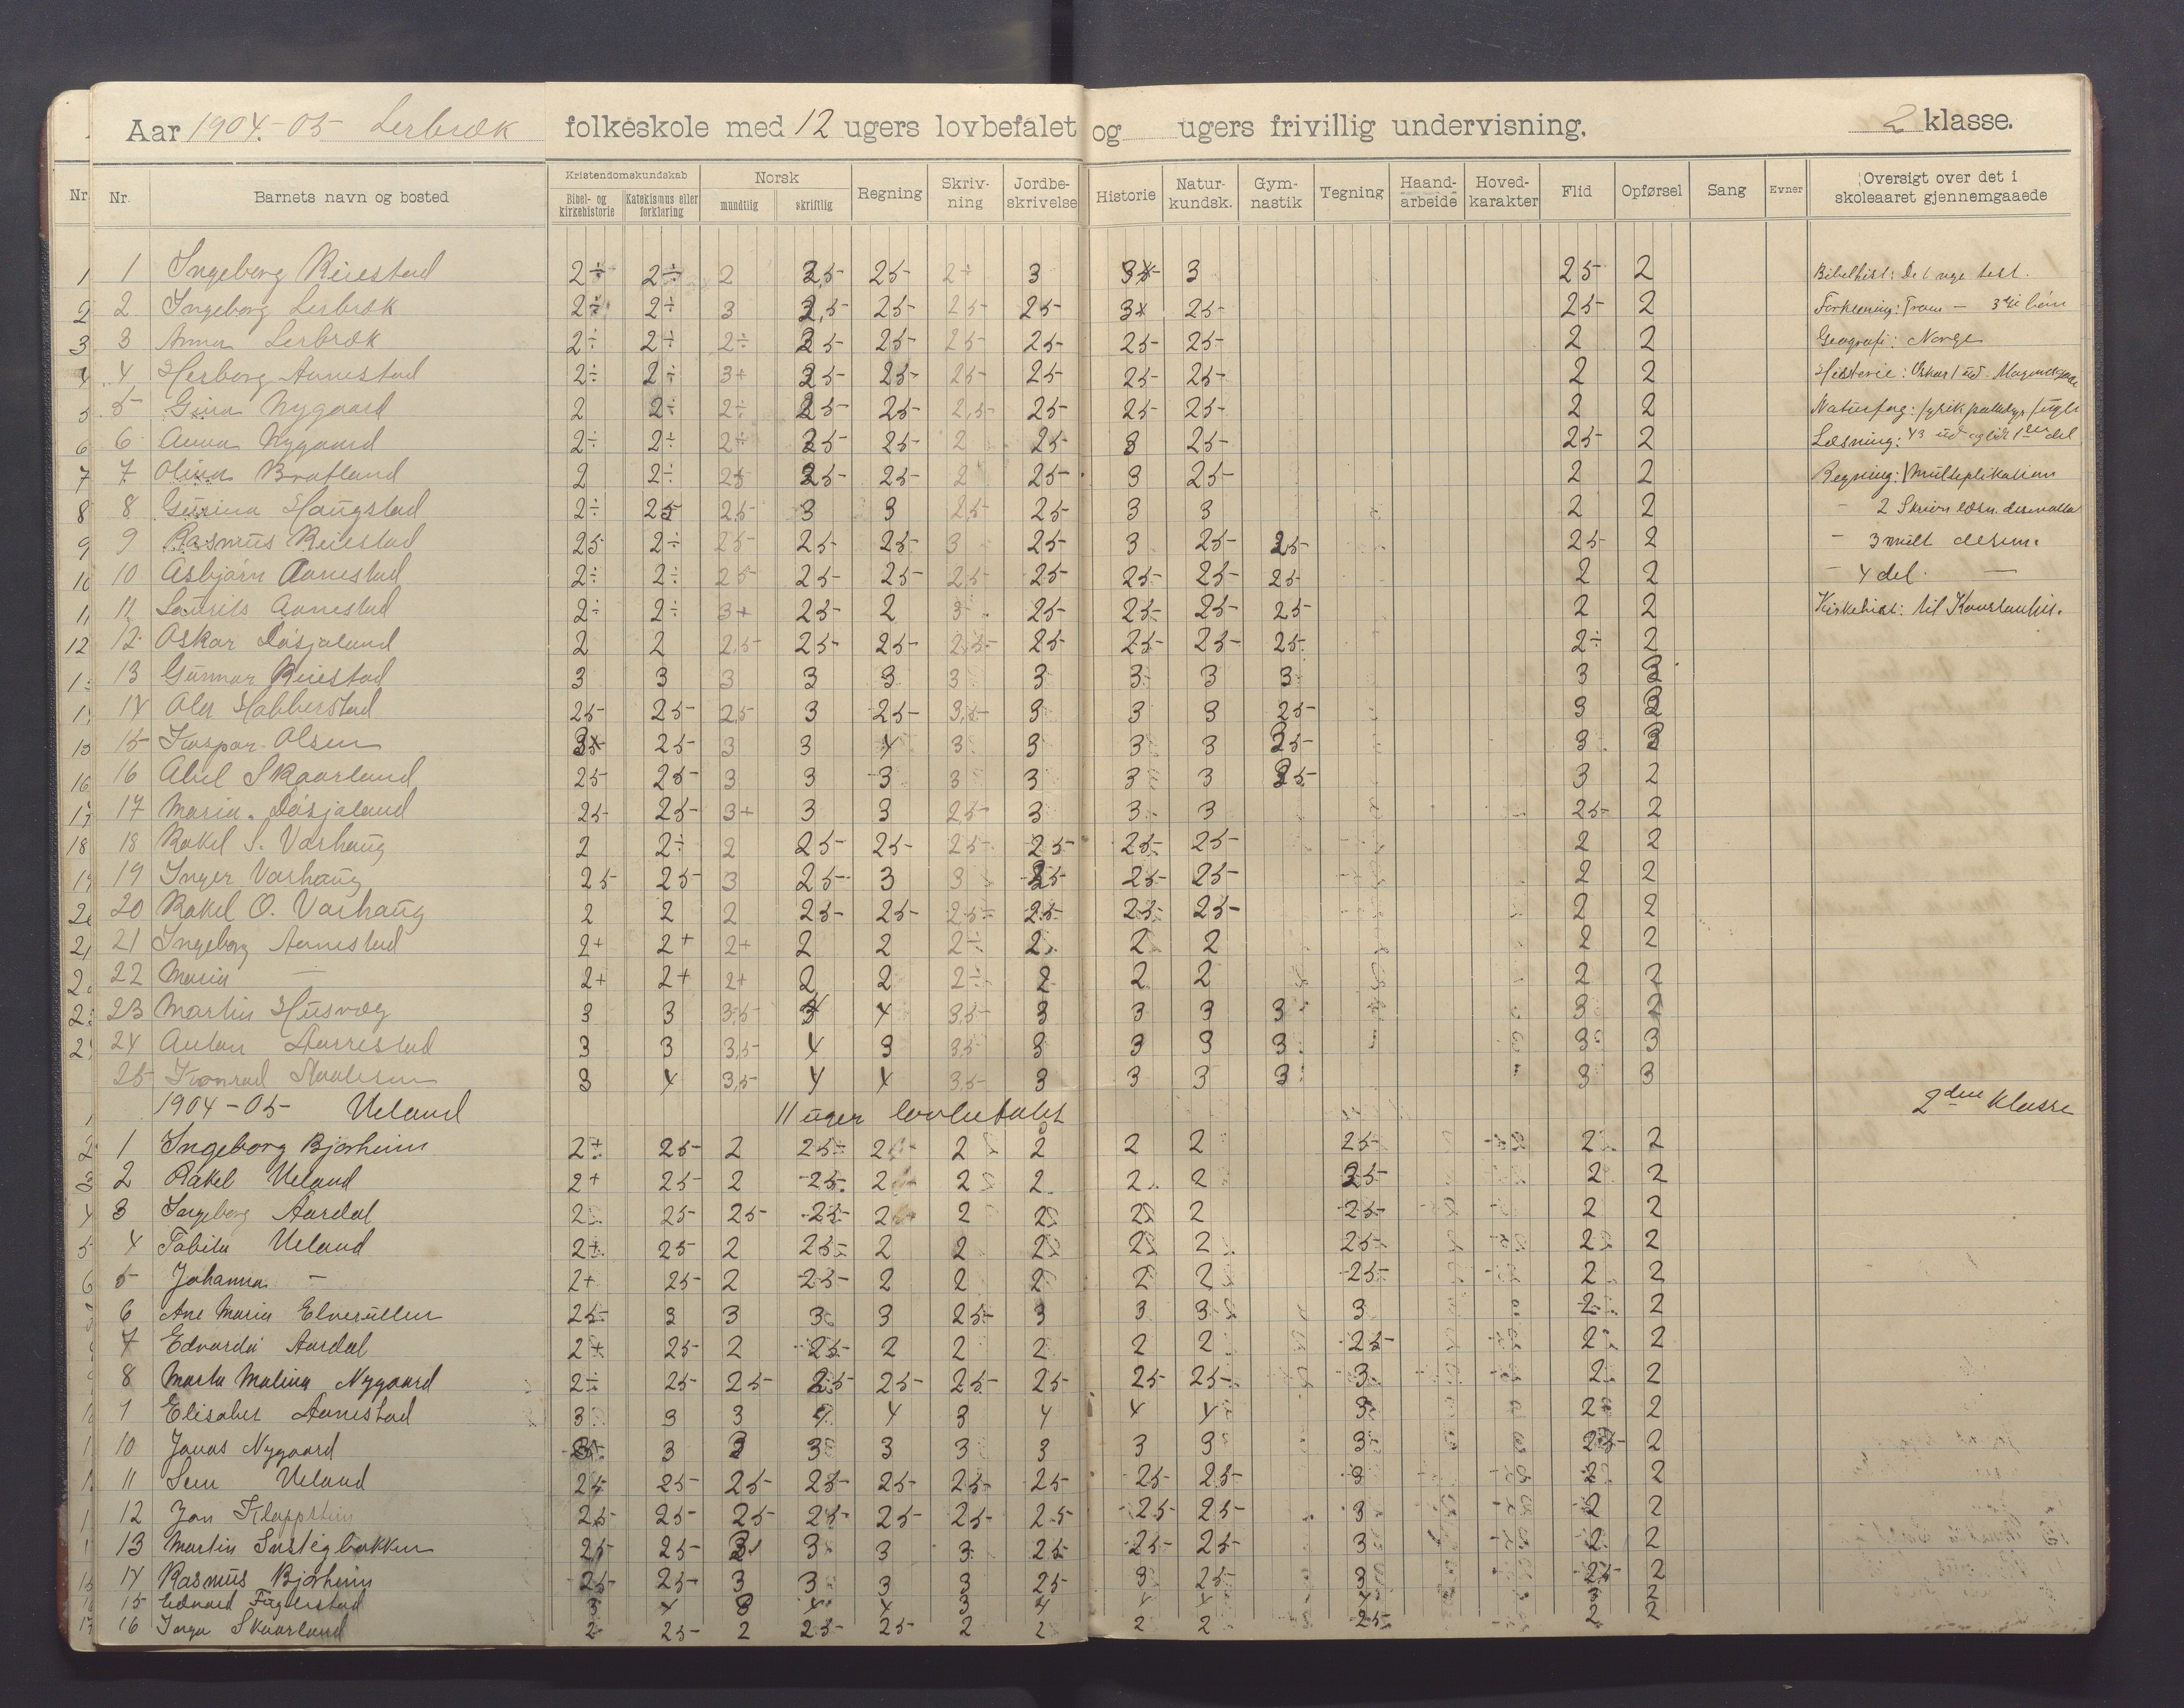 Aar 1904-05 Lerbræk folkeskole med 12 ugers lovbefalet og ugers frivillig undervisning. 2 klasse.
Nr. Nr. Barnets navn og bosted Kristendomskundskab Bibel- og kirkehistorie Katekismus eller forklaring Norsk mundtlig skriftlig Regning Skrivning Jordbeskrivelse Historie Naturkundsk. Gymnastik Tegning Haandarbeide Hovedkarakter Flid Opførsel Sang Evner Oversigt over det i skoleaaret gjennemgaaede
1 1 Ingeborg Reiestad 2÷ 2÷ 2 2,5 25 2÷ 3 3 25 2 Bibelhist: Det nye test.
2 2 Ingeborg Lerbræk 2÷ 2÷ 3 2,5 25 25 25 25 25 2
3 3 Anna Lerbræk 2÷ 2÷ 2÷ 25 25 25 25 25 25 2 2 Geografi: Norge
4 4 Herborg Aanestad 2÷ 2÷ 3+ 25 25 25 25 25 25 2 2
5 5 Gina Nygaard 2 2÷ 2÷ 25 25 2,5 25 25 25 2 2
6 6 Anna Nygaard 2÷ 2÷ 2÷ 25 25 2 25 3 25 25 2
7 7 Olina Bratland 2 2÷ 25 25 25 2 25 3 25 2 2 Regning: 1 Multiplikation
8 8 Gurina Haugstad 2÷ 25 2,5 3 3 25 25 3 3 2 2
9 9 Rasmus Reiestad 25 2÷ 25 25 25 3 25 3 25 25 25 2 - 3 mult desim.
10 10 Asbjørn Aanestad 2÷ 2÷ 25 25 25 25 25 25 25 25 2 2 - 4 del. —
11 11 Laurits Aanestad 2÷ 2÷ 3+ 25 2 3 25 25 25 25 2 2 Kirkehist: til Konstantin.
12 12 Oskar Døsjaland 2 2 2,5 25 25 2,5 25 25 25 25 2÷ 2
13 Gunnar Reiestad 3 3 3 3 3 3 3 3 3 3 3 3
14 Oler Habberstad 25 25 2,5 3 25 3,5 3 3 3 25 3 3
15 15 Kaspar Olsen 25 3 3 4 3 3 3 3 25 3 3
16 16 Abel Skaarland 25 25 3 3 3 3 3 3 3 25 3 2
17 17 Maria Døsjaland 25 25 3+ 3 3 25 3 3 3 25 2
18 18 Rakel S. Varhaug 2 2÷ 2 25 25 25 25 25 25 2 2
19 19 Inger Varhaug 25 25 3 25 3 3 25 25 25 2 2
20 20 Rakel O. Varhaug 2 2 2 25 25 25 25 25 25 2 2
21 21 Ingeborg Aanestad 2+ 2+ 2+ 2 2 2÷ 2 2 2 2 2
22 Maria — 2+ 2+ 2+ 2 2 2÷ 2 2 2 2 2
23 Martin Husvæg 3 3 3,5 4 3,5 3 3 3 3 3 2
24 Anton Harrestad 3 3 3,5 4 3 3,5 3 3 3 3 3 3
25 Konrad 3 4 3,5 4 4 3,5 3 3 3 3 3 3
1904-05 Ueland 11 uger lovbefalet 2den Klasse
1 Ingeborg Bjørheim 2+ 25 2 25 2 2 2 2 2 25 2 2
2 Rakel Ueland 2+ 25 2 25 2 2 2 2 2 25 2 2
3 Ingeborg Aardal 2 25 25 25 2 2 2 2 2 25 2 2
4 Tabita Ueland 2+ 25 2 25 2 2 2 2 2 25 2 2
5 Johanna — 2+ 25 2 25 2 2 2 2 2 25 2 2
6 Ane Maria 25 3 3 3 3 25 3 3 3 3 2 2
7 Edvarda Aardal 2+ 25 2 25 2 2 2 2 2 25 2 2
8 Marta Malina Nygaard 2÷ 25 25 25 25 25 25 25 25 3 2 2
Elisabet Aanestad 3 3 3 4 4 3 4 4 4 3 2 2
10 Jonas Nygaard 3 3 3 3 3 3 3 3 25 2
11 Sem Ueland 25 25 25 25 25 25 25 25 25 3 2 2
12 Jan Kleppstein 25 25 25 25 25 25 25 25 25 3 2 2
13 Martin 25 25 3 3 3 25 25 25 3 2 2
14 Rasmus Bjørheim 25 25 3 3 3 3 25 3 25 3 25 2
15 Edvard Fuglestad 3 4 3 4 4 3 4 4 4 4 3 2
16 Inga Skaarland 2 25 2 25 25 2 2 2 2 25 2 2